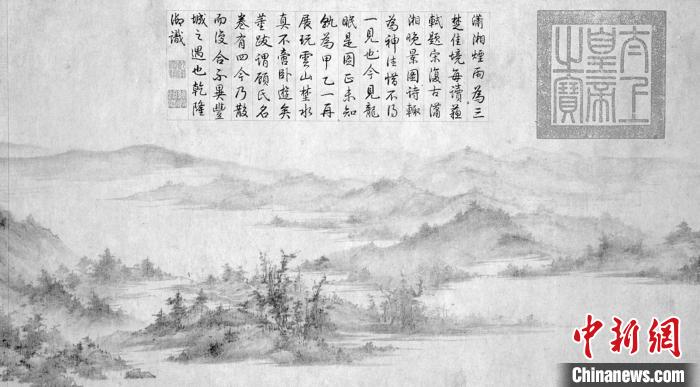 太上
皇帝
之寶
瀟湘煙雨為三
楚佳境每讀蘇
軾題宋復古瀟
湘晚景圖詩輒
為神注惜不得
一見也今見龍
眠是圖正未知
孰為甲乙一再
展玩雲山埜水
真不啻卧遊矣
董跋謂顧氏名
卷有四今乃散
而復合不異豐
城之遇也乾隆
御識
中新网
Chinanews.com